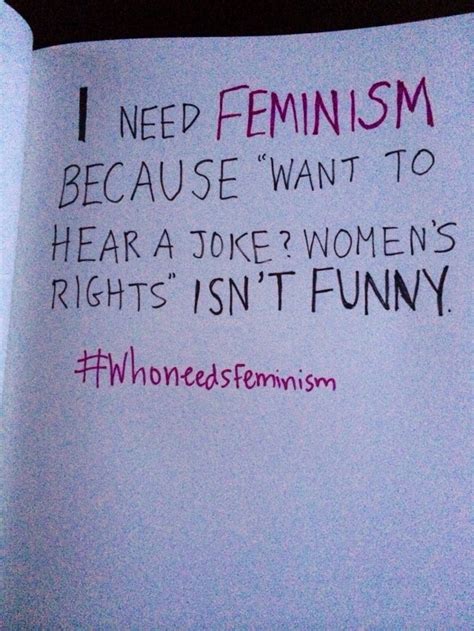 I NEED FEMINISM
BECAUSE "WANT TO
HEAR A JOKE? WOMEN'S
RIGHTS" ISN'T FUNNY.
#Whoneedsfeminism